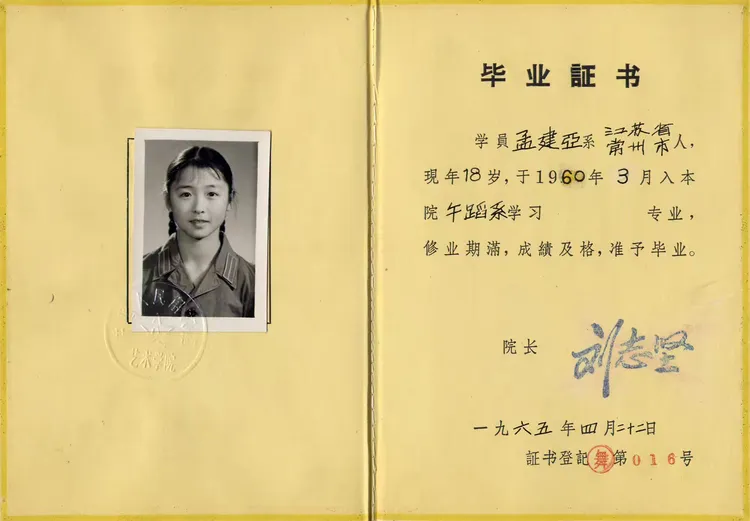 艺术学院
毕业証书
学員孟建亞系江苏省常州市人,
現年18岁,于1960年3月入本
院午蹈系学习 专业,
修业期滿,成績及格,准予毕业。
院长 刘志坚
一九六五年四月二十二日
証书登記舞第016号